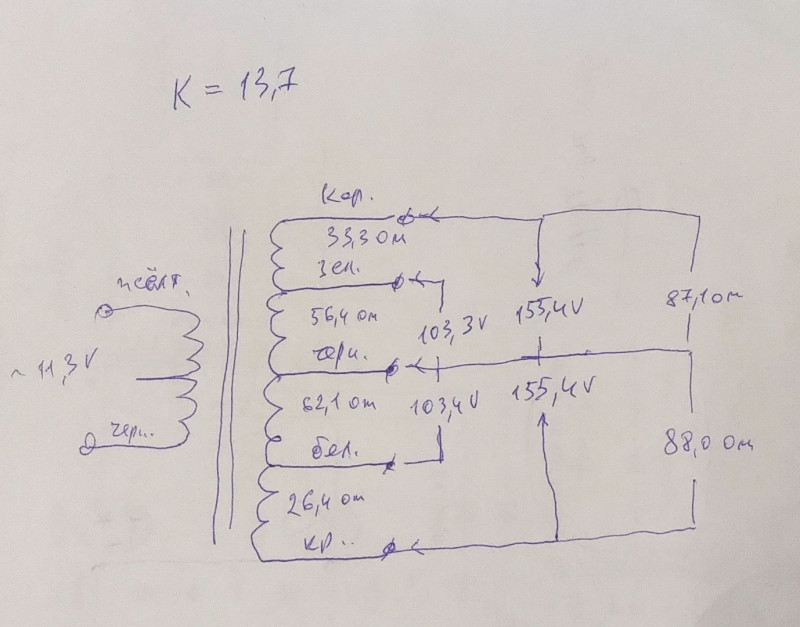 K = 13,7
Кор.
33,3 ом
Зел.
жёлт.
56,4 ом
103,3 V
155,4 V
87,1 ом
черн.
~ 11,3 V
62,1 ом
103,4 V
155,4 V
черн.
бел.
88,0 ом
26,4 ом
кр..